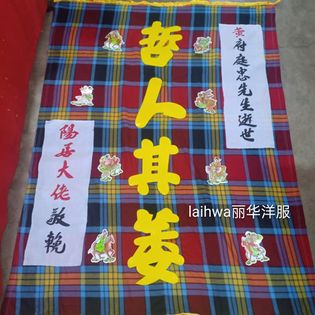 黄府庭忠先生逝世
哲人其萎
陽平大佬敬輓
laihwa丽华洋服